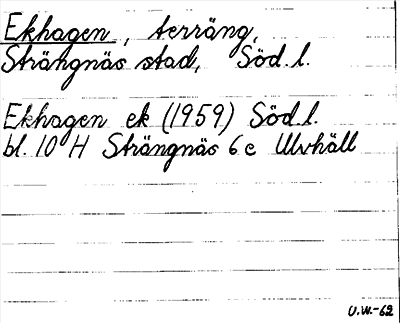 Ekhagen, terräng,
Strängnäs stad, Söd.l.
Ekhagen ek (1959) Söd.l.
bl. 10 H Strängnäs 6c Ulvhäll
U.W.-62